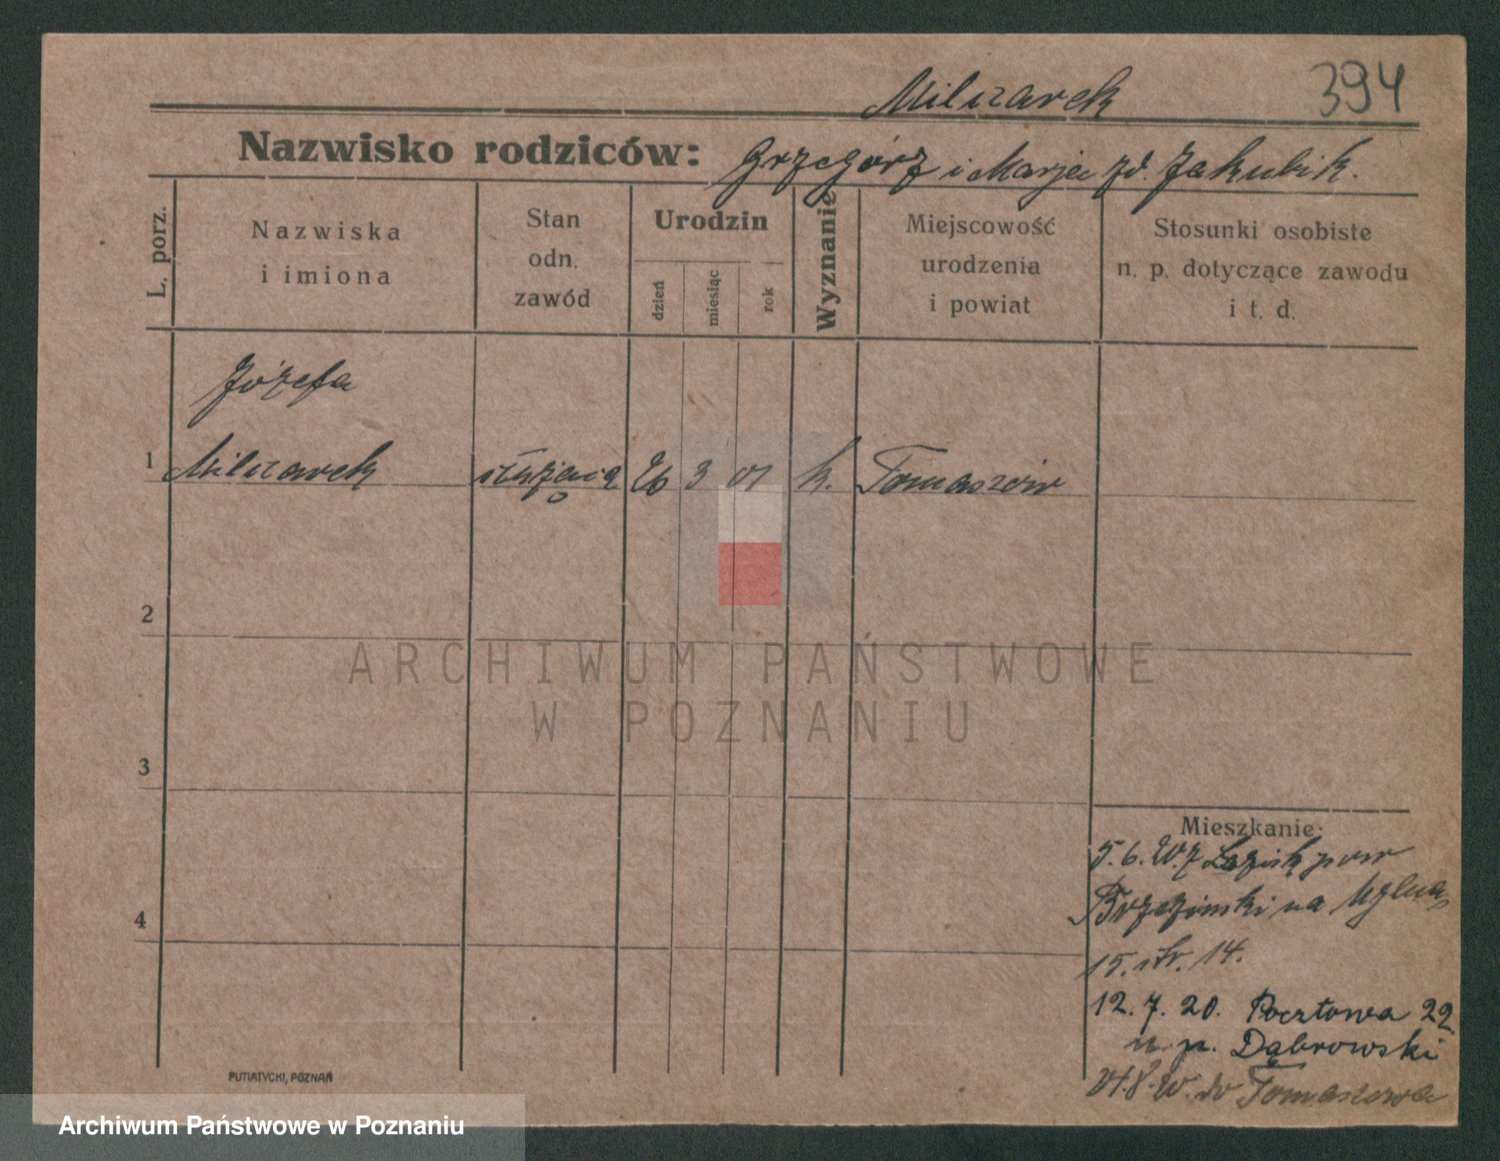 394
Milczarek
Nazwisko rodziców: Grzegórz i Marja zd. Jakubik.
L. porz.
Nazwiska i imiona
Stan odn. zawód
Urodzin
dzień
miesiąc
rok
Wyznanie
Miejscowość urodzenia i powiat
Stosunki osobiste n. p. dotyczące zawodu i t. d.
Józefa
1 Milczarek służąca 26 3 01 k. Tomaszów
2
ARCHIWUM PAŃSTWOWE
W POZNANIU
3
4
Mieszkanie:
5.6.20. z pow
Brzeziński na
15. str. 14.
12.7.20. Pocztowa 22
u. p. Dąbrowski
do Tomaszowa
PUTIATYCKI, POZNAŃ
Archiwum Państwowe w Poznaniu